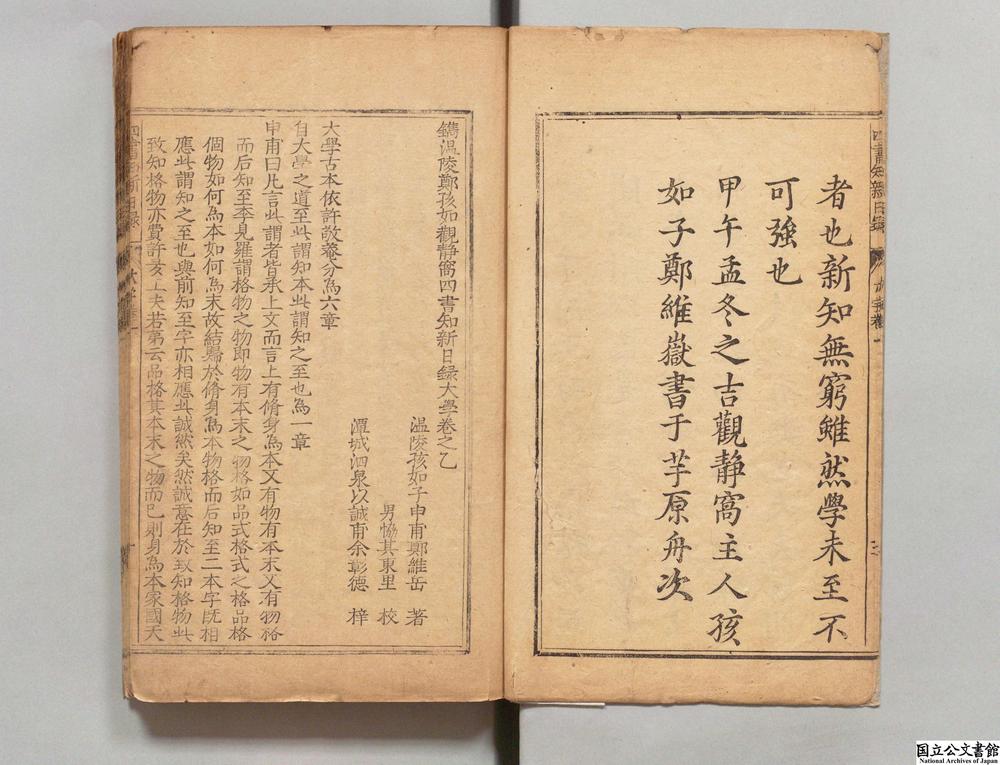 者也新知無窮雖然學未至不
可強也
甲午孟冬之吉觀靜窩主人孩
如子鄭維嶽書于芋原舟次
鐫温陵鄭孩如觀靜窩四書知新日録大學卷之乙
温陵孩如子申甫鄭維岳 著
男恊其東里 校
潭城泗泉以誠甫余彰德 梓
大學古本依許敬菴分為六章
自大學之道至此謂知本此謂知之至也為一章
申甫曰凡言此謂者皆承上文而言上有脩身為本又有物有本末又有物格
而后知至李見羅謂格物之物即物有本末之物格如品式格式之格品格
個物如何為本如何為末故結歸於脩身為本物格而后知至二本字旣相
應此謂知之至也與前知至字亦相應此誠然矣然誠意在於致知格物此
致知格物亦費許多工夫若第云品格其本末之物而已則身為本家國天
四書知新日錄
國立公文書館
National Archives of Japan